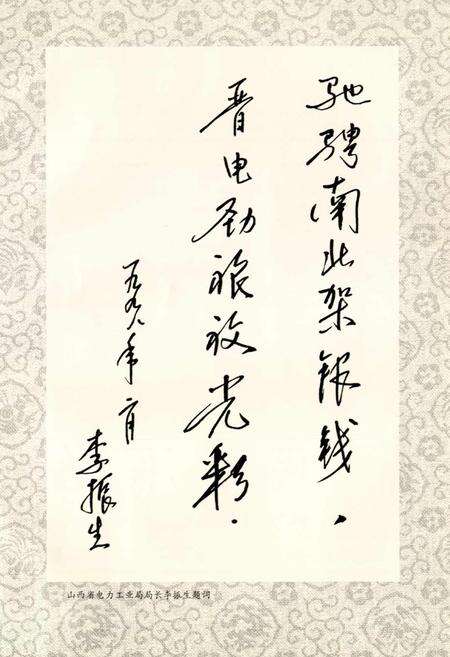 驰骋南北架银线，
晋电劲旅放光彩．
一九九八年二月
李振生
山西省电力工业局局长李振生题词